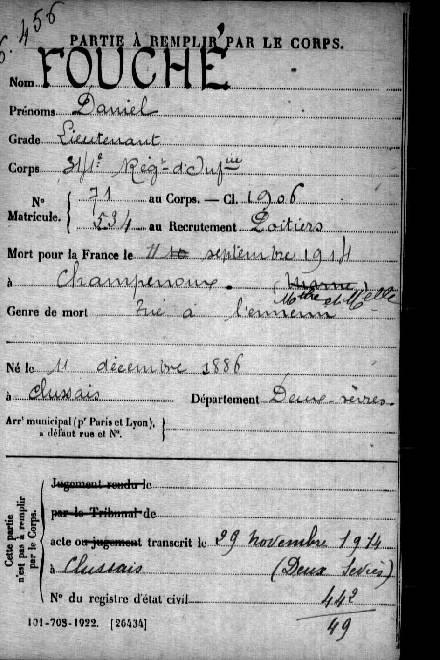 6. 456
PARTIE À REMPLIR PAR LE CORPS.
Nom FOUCHÉ
Prénoms Daniel
Grade Lieutenant
Corps 341e Régt d'Infrie
N° Matricule. { 71 au Corps. — Cl. 1906
534 au Recrutement Poitiers
Mort pour la France le 11 septembre 1914
à Champenoux (Marne)
Mthe et Melle
Genre de mort Tué à l'ennemi
Né le 11 décembre 1886
à Clussais Département Deux-sèvres
Arrt municipal (pr Paris et Lyon),
à défaut rue et N°. }
Cette partie n'est pas à remplir par le Corps.
Jugement rendu le
par le Tribunal de
acte ou jugement transcrit le 29 Novembre 1914
à Clussais (Deux Sevres)
N° du registre d'état civil 442
49
101-708-1922. [26434]